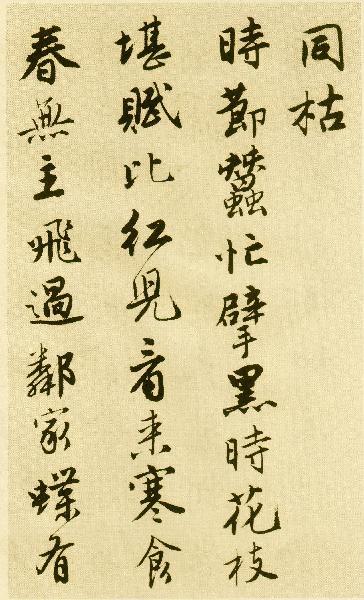 同枯
時節蠶忙擘黑時花枝
堪賦比紅兒看来寒食
春無主飛過鄰家蝶有